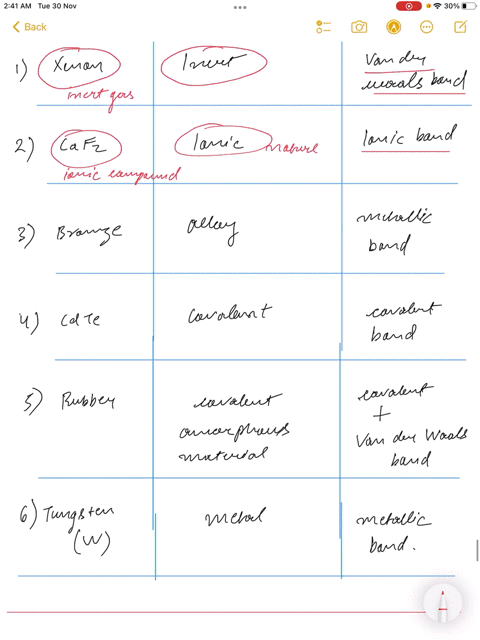 2:41 AM Tue 30 Nov
30%
Back
1) Xenon
inert gas
Inert
Van der
waals bond
2) CaF2
ionic compound
Ionic nature
Ionic bond
3) Bronze
alloy
metallic
bond
4) CdTe
covalent
covalent
bond
5) Rubber
covalent
amorphous
material
covalent
+
Van der Waals
bond
6) Tungsten
(W)
metal
metallic
bond.